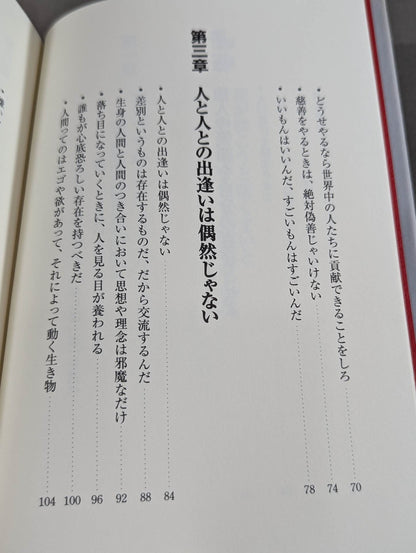 ・どうせやるなら世界中の人たちに貢献できることをしろ 70
・慈善をやるときは、絶対偽善じゃいけない 74
・いいもんはいいんだ、すごいもんはすごいんだ 78
第三章 人と人との出逢いは偶然じゃない
・人と人との出逢いは偶然じゃない 84
・差別というものは存在するものだ、だから交流するんだ 88
・生身の人間と人間のつき合いにおいて思想や理念は邪魔なだけ 92
・落ち目になっていくときに、人を見る目が養われる 96
・誰もが心底恐ろしい存在を持つべきだ 100
・人間ってのはエゴや欲があって、それによって動く生き物 104